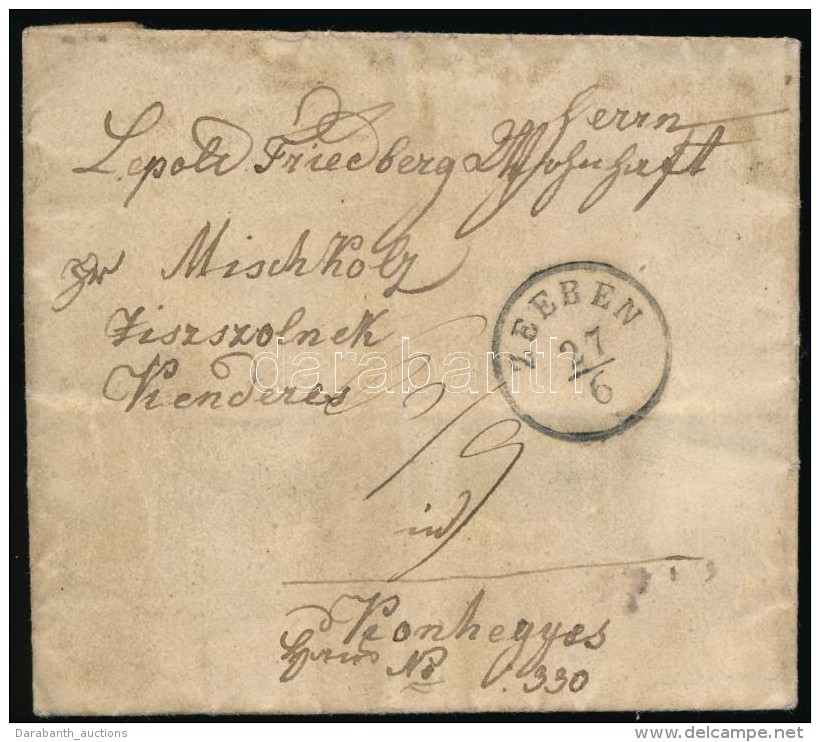 Herrn
Lepold Friedberg Wohnhaft
zu Mischkolz
Tiszszolnok
Kenderes
ZEEBEN
27/6
darabanth
in
Konhegyes
No 330
Darabanth_auctions
www.delcampe.net